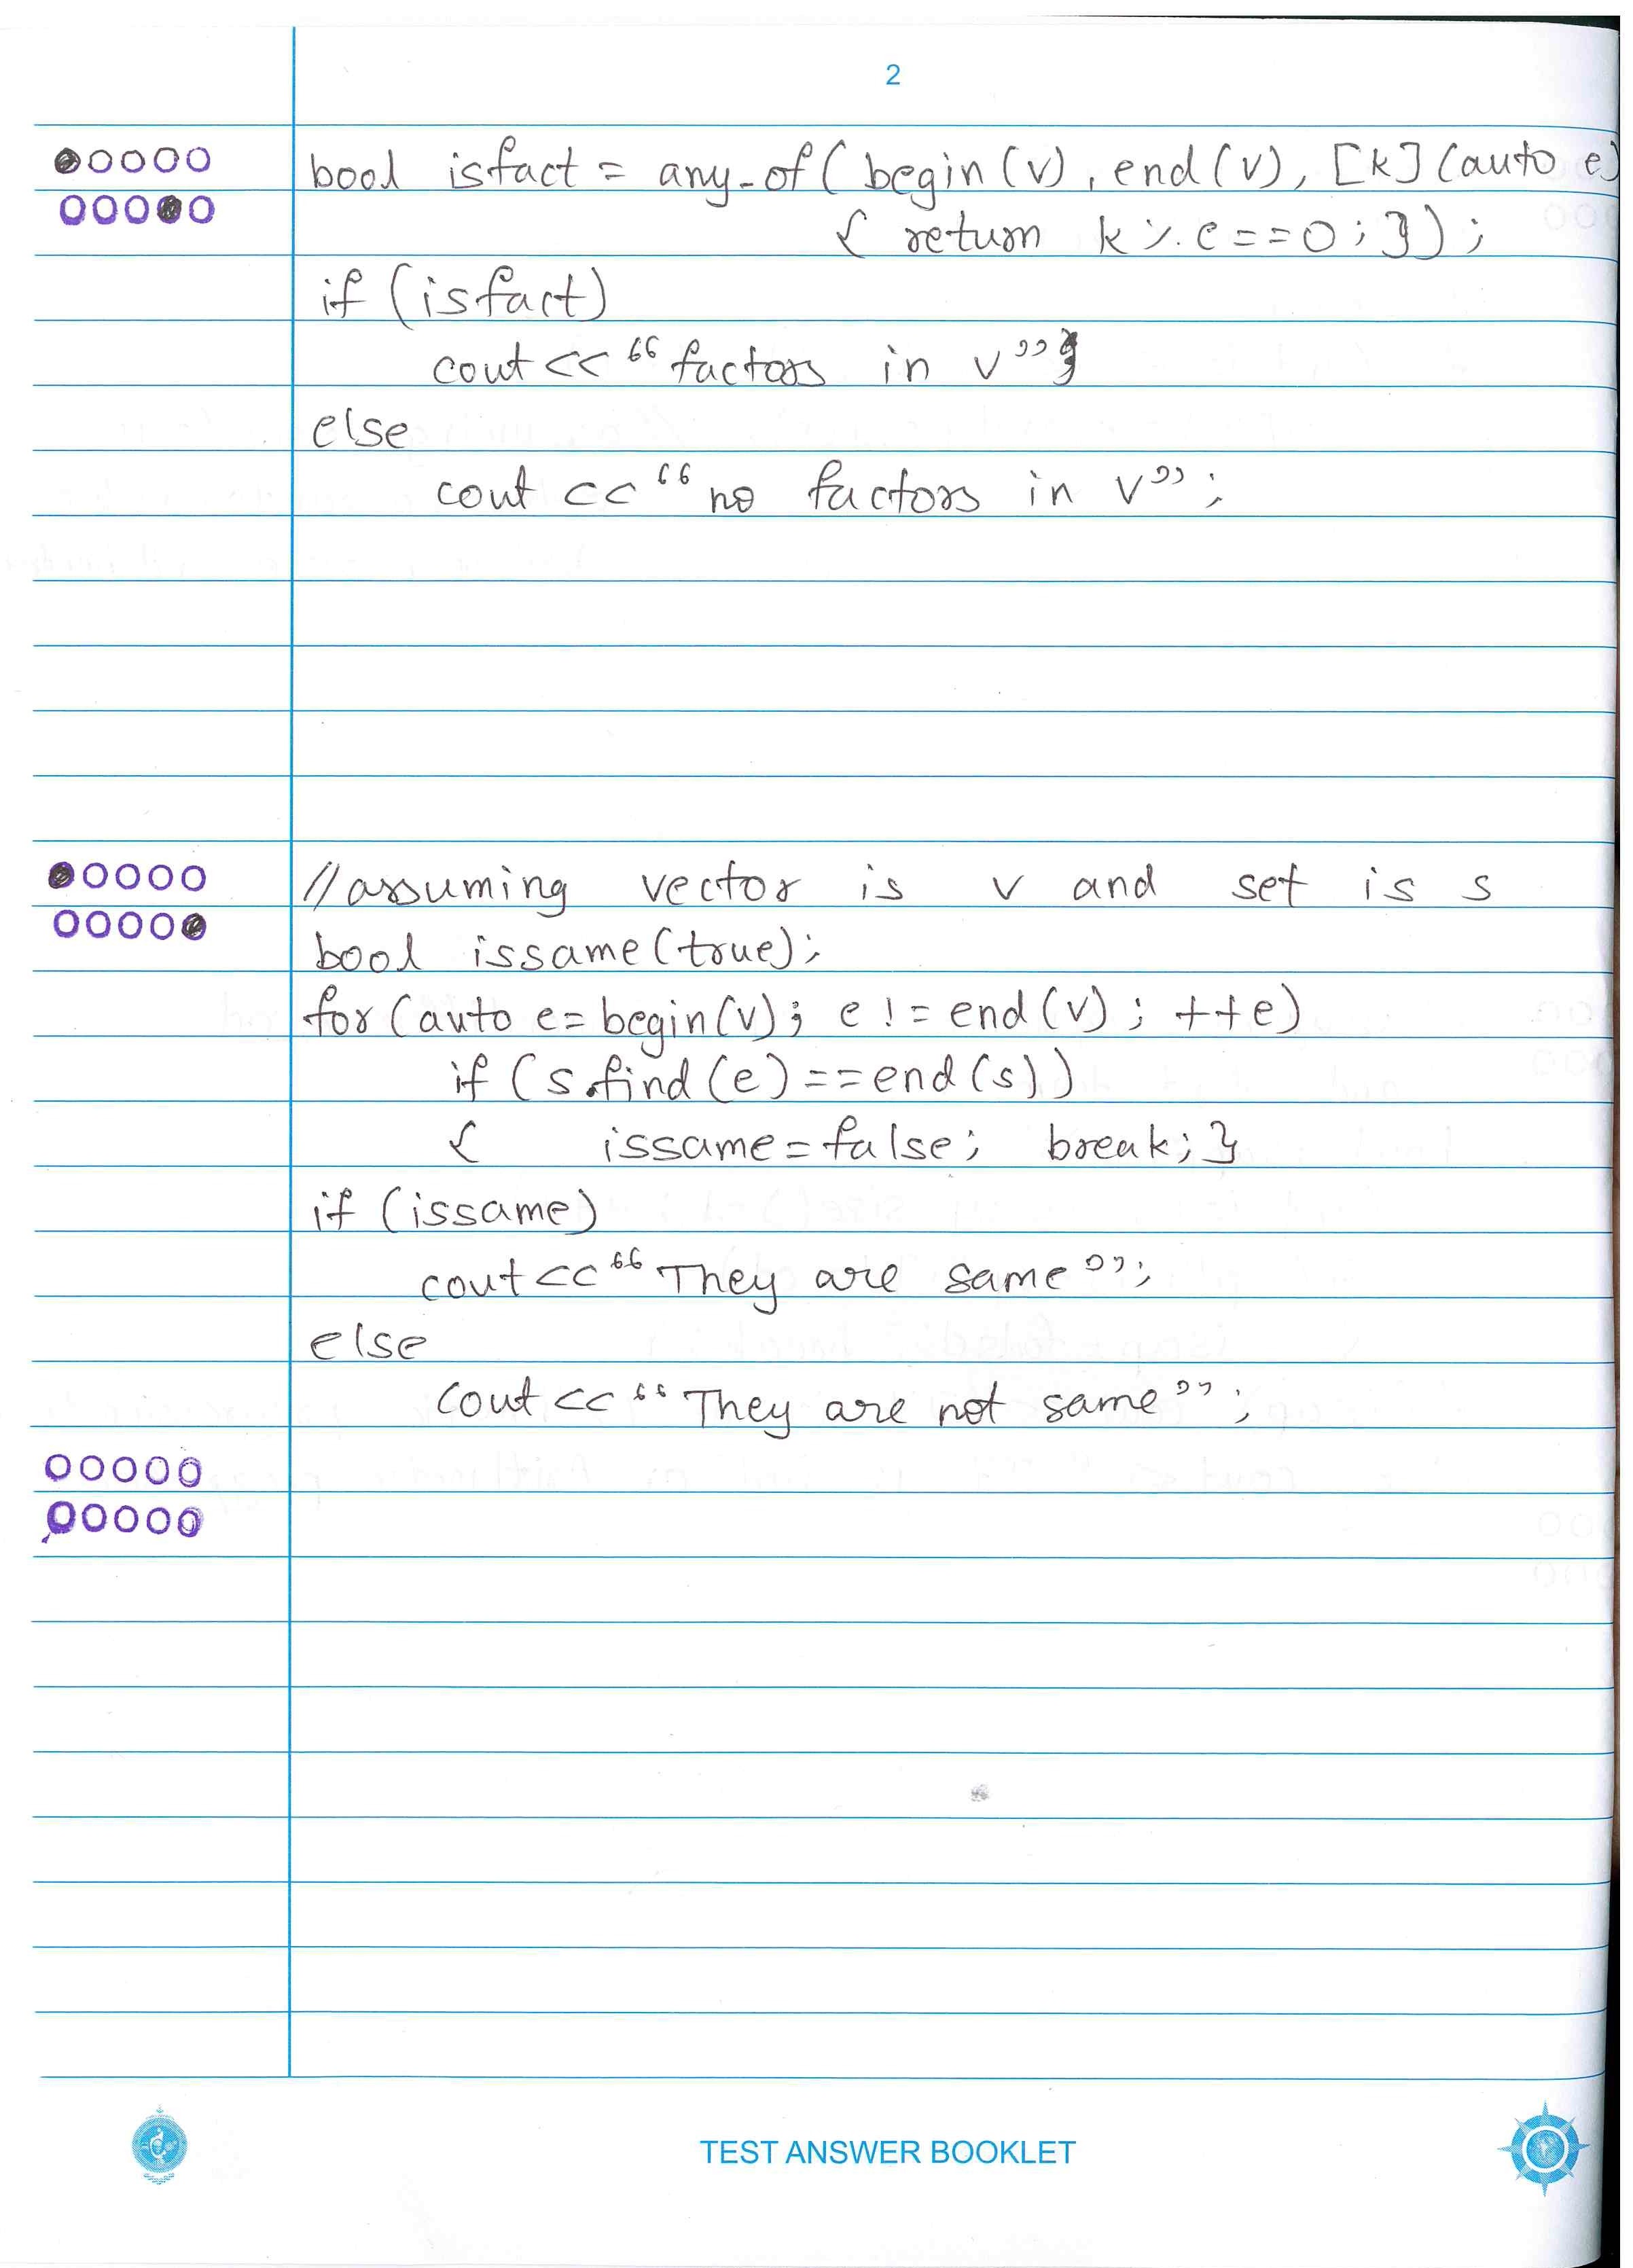 2
bool isfact = any_of( begin(v), end(v), [k](auto e)
{ return k % e==0; });
if (isfact)
cout << "factors in v";
else
cout << "no factors in v";
//assuming vector is v and set is s
bool issame(true);
for(auto e=begin(v); e != end(v); ++e)
if (s.find(e)==end(s))
{ issame=false; break;}
if (issame)
cout<<"They are same";
else
cout<<"They are not same";
TEST ANSWER BOOKLET